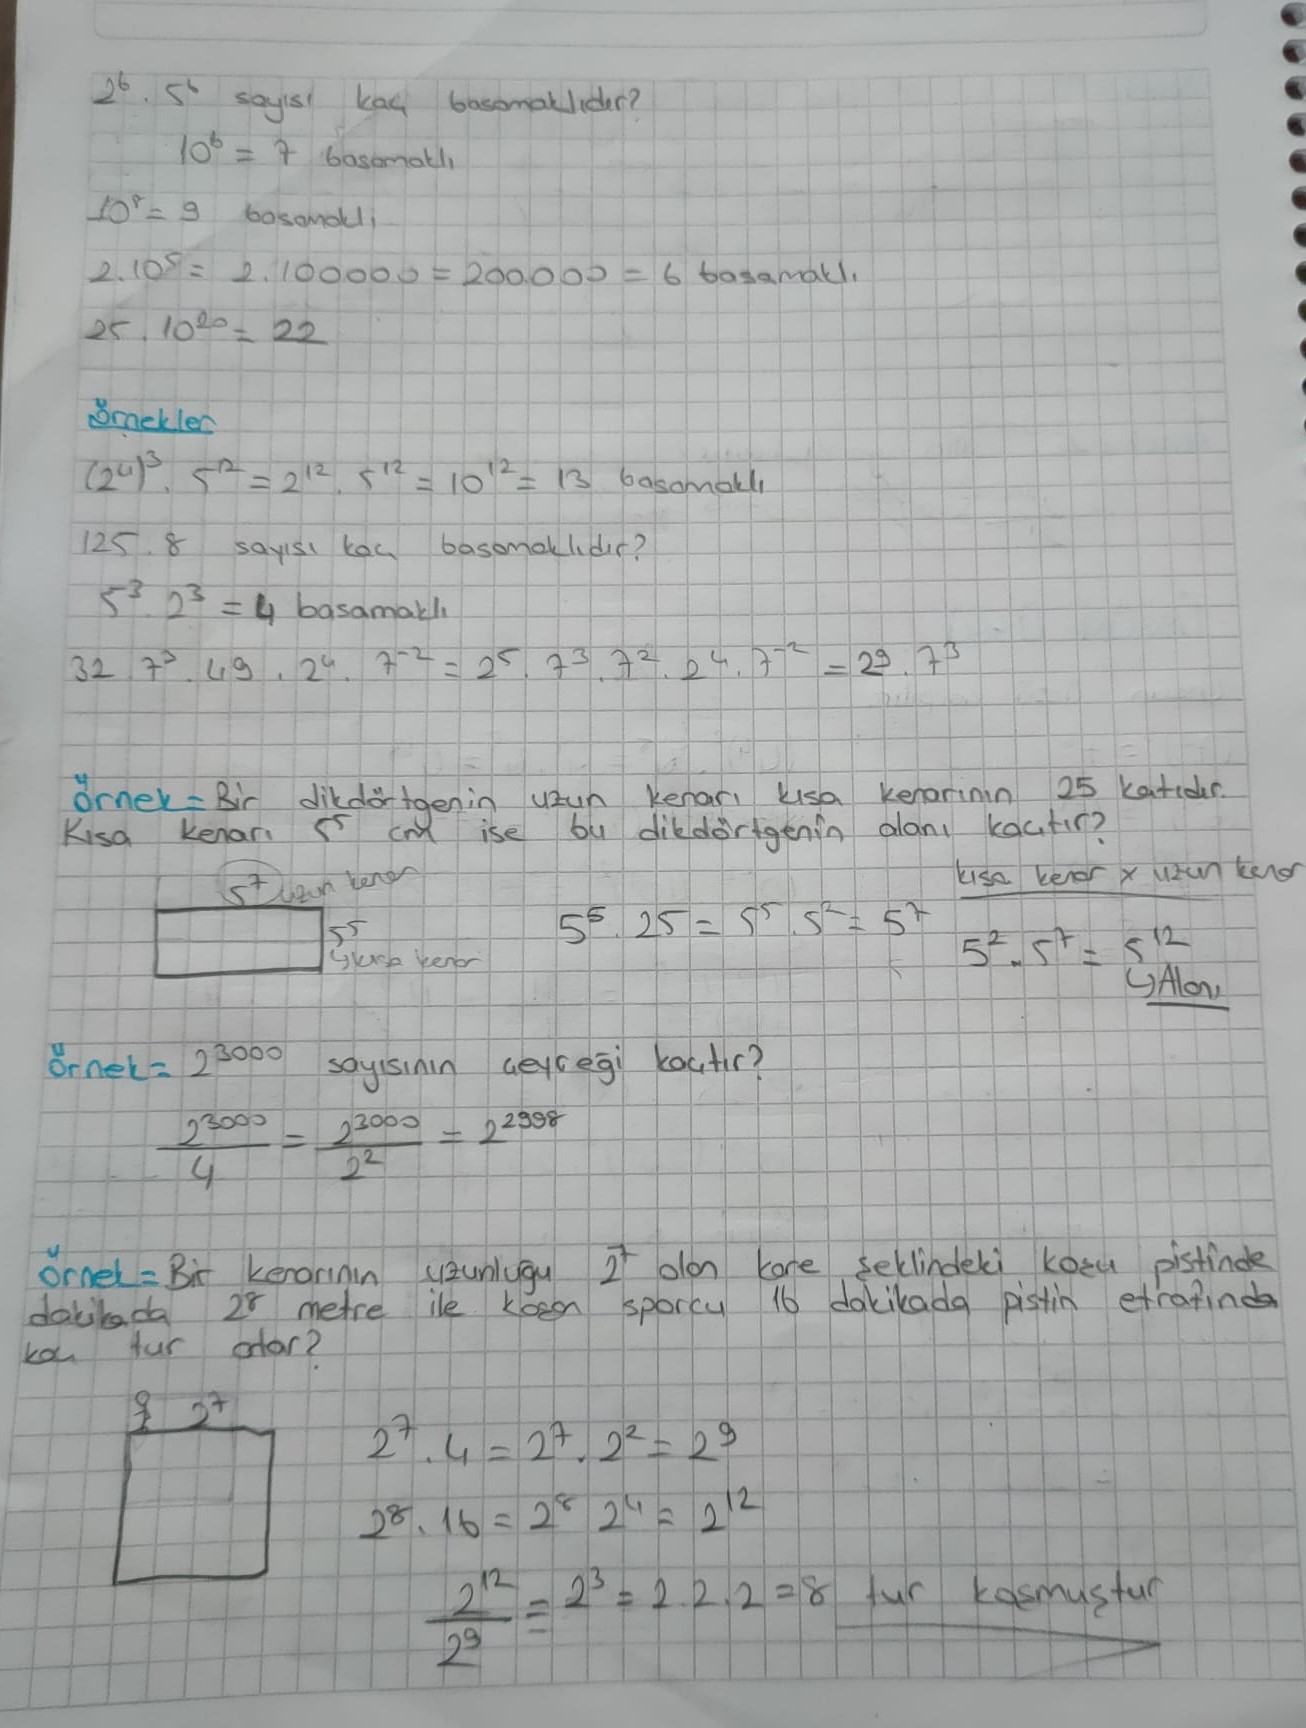 2⁶ . 5⁶ sayısı kaç basamaklıdır?
10⁶ = 7 basamaklı
10⁸ = 9 basamaklı
2.10⁵ = 2.100000 = 200.000 = 6 basamaklı
25 . 10²⁰ = 22
Örnekler
(2⁴)³ . 5¹² = 2¹² . 5¹² = 10¹² = 13 basamaklı
125 . 8 sayısı kaç basamaklıdır?
5³ . 2³ = 4 basamaklı
32 . 7³ . 49 . 2⁴ . 7⁻² = 2⁵ . 7³ . 7² . 2⁴ . 7⁻² = 2⁹ . 7³
Örnek = Bir dikdörtgenin uzun kenarı kısa kenarının 25 katıdır.
Kısa kenarı 5⁵ cm ise bu dikdörtgenin alanı kaçtır?
5⁷ uzun kenar
5⁵
↳ kısa kenar
5⁵ . 25 = 5⁵ . 5² = 5⁷
kısa kenar x uzun kenar
5² . 5⁷ = 5¹²
↳ Alanı
Örnek = 2³⁰⁰⁰ sayısının çeyreği kaçtır?
2³⁰⁰⁰/4 = 2³⁰⁰⁰/2² = 2²⁹⁹⁸
Örnek = Bir kenarının uzunluğu 2⁷ olan kare şeklindeki koşu pistinde
dakikada 2⁸ metre ile koşan sporcu 16 dakikada pistin etrafında
kaç tur atar?
2⁷
2⁷ . 4 = 2⁷ . 2² = 2⁹
2⁸ . 16 = 2⁸ 2⁴ = 2¹²
2¹²/2⁹ = 2³ = 2.2.2 = 8 tur koşmuştur